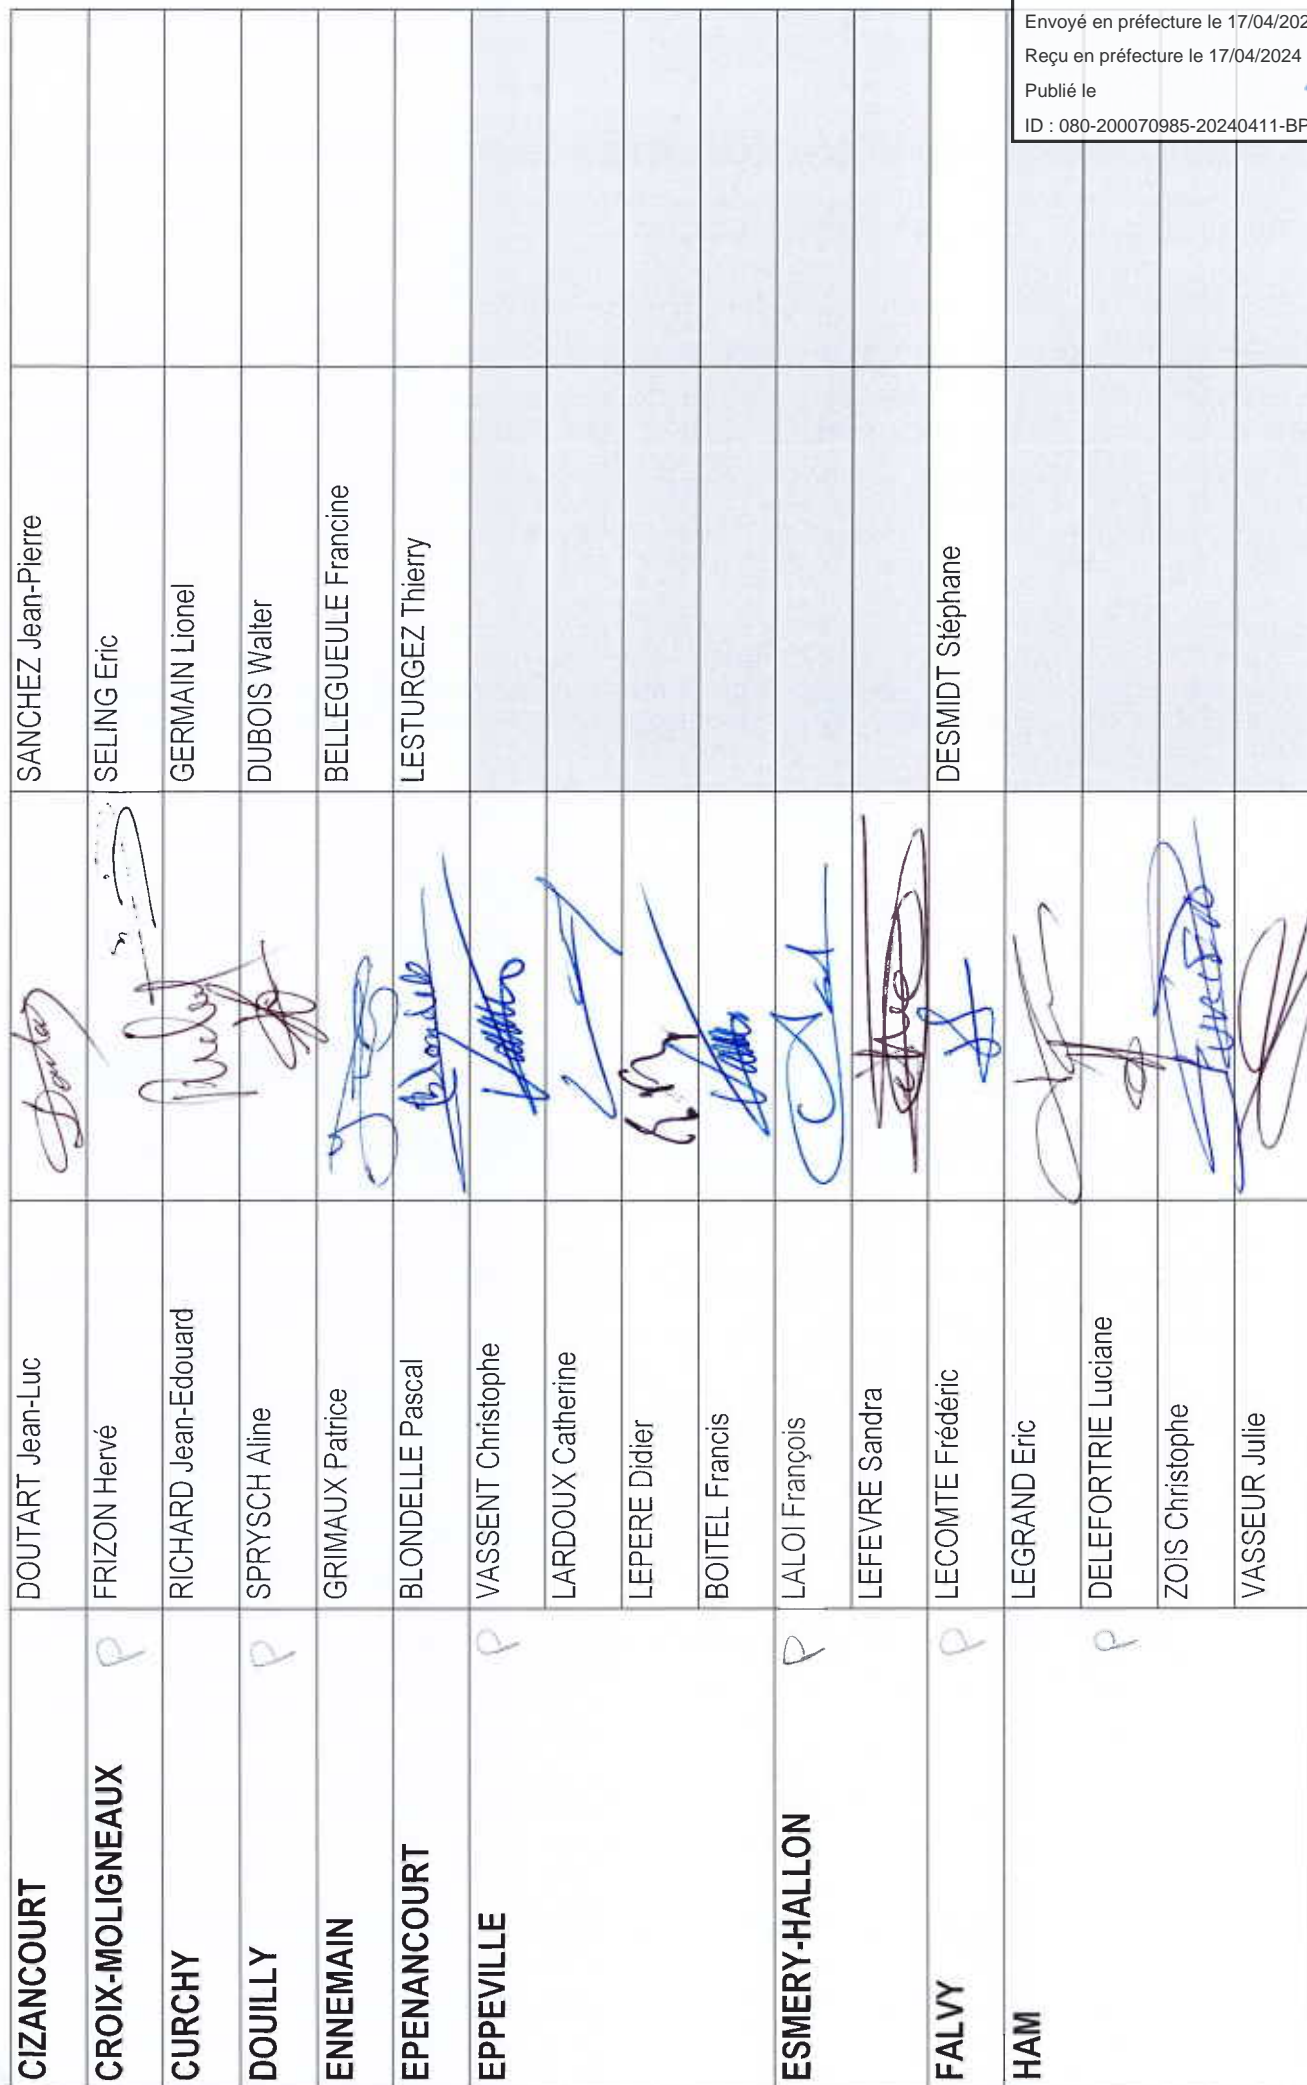 Envoyé en préfecture le 17/04/202
Reçu en préfecture le 17/04/2024
Publié le
ID : 080-200070985-20240411-BP
CIZANCOURT DOUTART Jean-Luc SANCHEZ Jean-Pierre
CROIX-MOLIGNEAUX P FRIZON Hervé SELING Eric
CURCHY RICHARD Jean-Edouard GERMAIN Lionel
DOUILLY P SPRYSCH Aline DUBOIS Walter
ENNEMAIN GRIMAUX Patrice BELLEGUEULE Francine
EPENANCOURT BLONDELLE Pascal Blondelle LESTURGEZ Thierry
EPPEVILLE P VASSENT Christophe
LARDOUX Catherine
LEPERE Didier
BOITEL Francis
ESMERY-HALLON P LALOI François
LEFEVRE Sandra
FALVY P LECOMTE Frédéric DESMIDT Stéphane
HAM LEGRAND Eric
P DELEFORTRIE Luciane
ZOIS Christophe
VASSEUR Julie